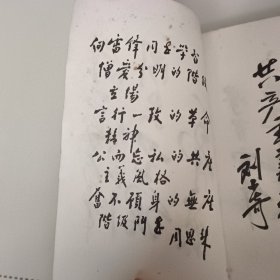 向雷锋同志学习
憎爱分明的阶级
立场
言行一致的革命
精神
公而忘私的共产
主义风格
奋不顾身的無产
阶级斗志
周恩来
共产主义
刘少奇